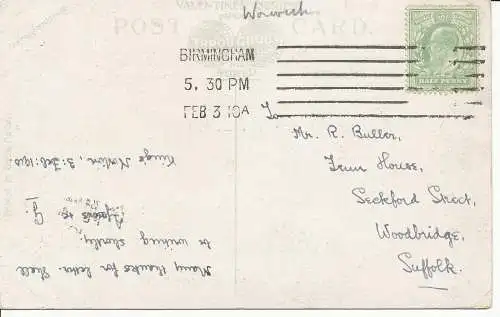 Warwick
VALENTINE'S SERIES
POST CARD.
BIRMINGHAM
5. 30 PM
FEB 3 10A
HALF PENNY
To
Mr. R. Buller,
House,
Seckford Street,
Woodbridge,
Suffolk.
King's Norton, 3: Feb: 1910
Many thanks for letter. Shall
be writing shortly.
G.